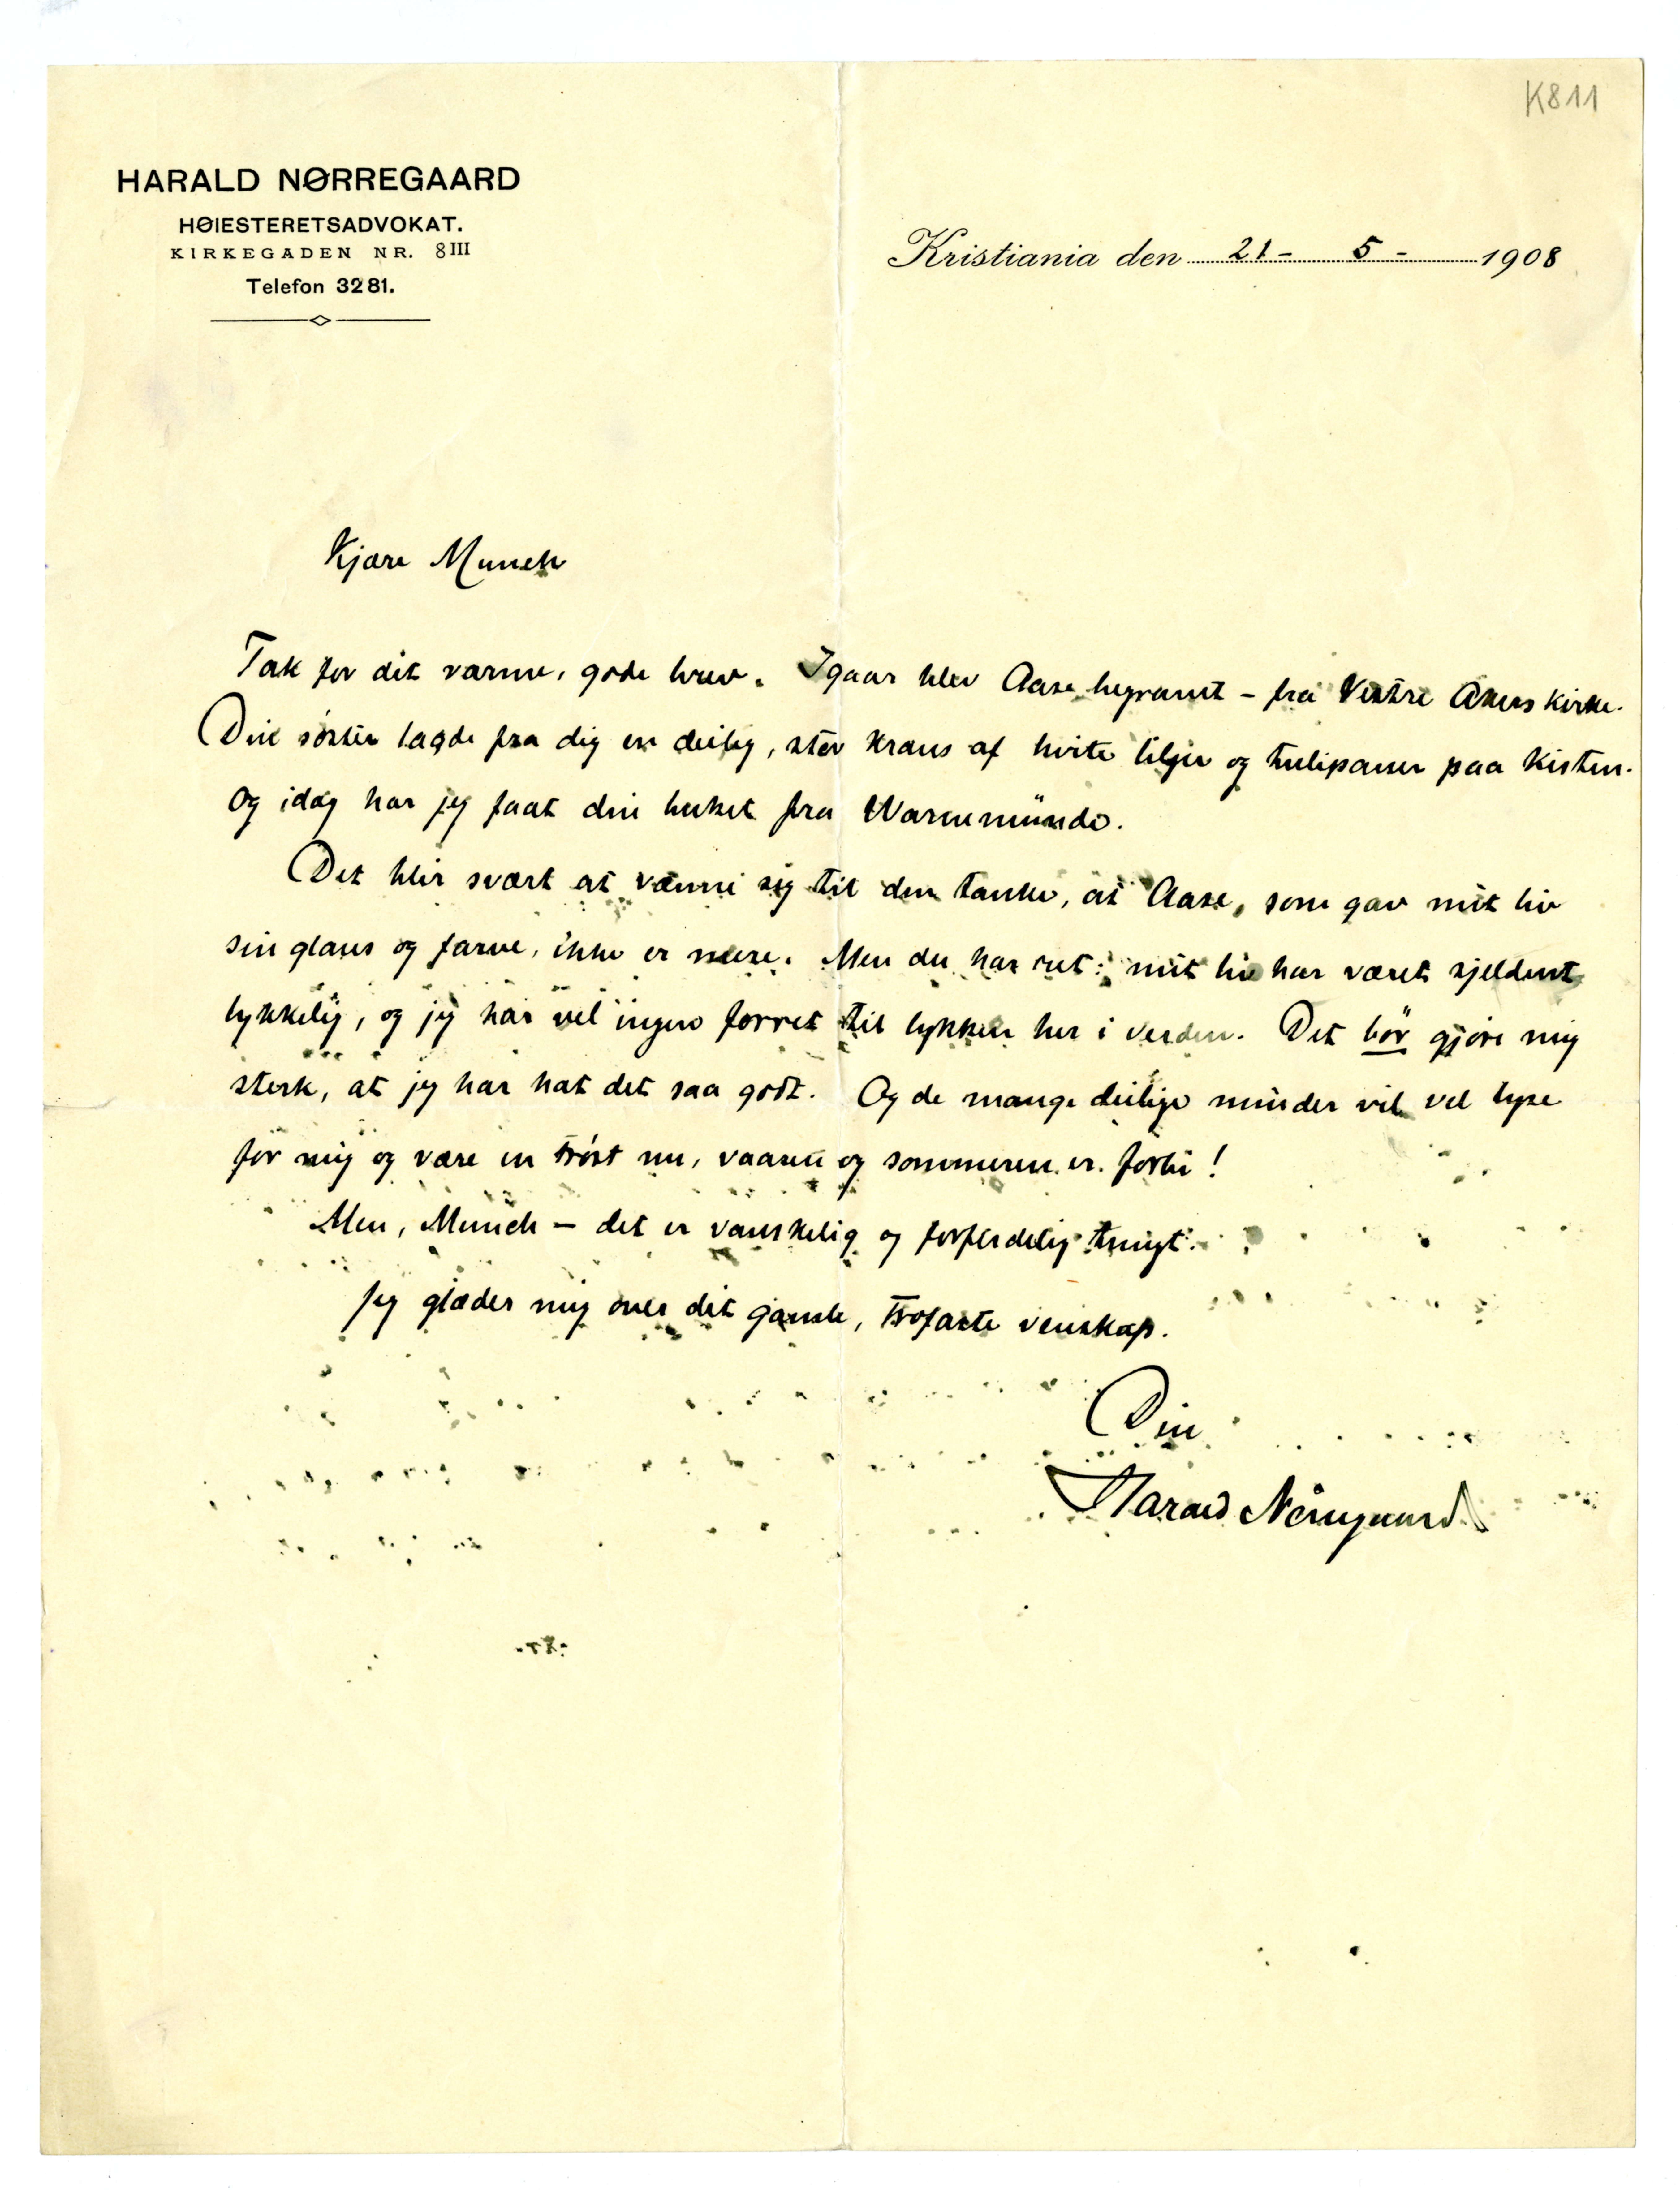 K811
HARALD NØRREGAARD
HØIESTERETSADVOKAT.
KIRKEGADEN NR. 8III
Telefon 3281.
Kristiania den 21 - 5 - 1908
Kjære Munch
Tak for dit varme, gode brev. Igaar blev Aase begravet – fra Vestre Akers kirke.
Din søster lagde fra dig en deilig, stor krans af hvite liljer og tulipaner paa kisten.
Og idag har jeg faat din buket fra Warnemünde.
Det blir svært at vænne sig til den tanke, at Aase, som gav mit liv
sin glans og farve, ikke er mere. Men du har ret: mit liv har været sjeldent
lykkelig, og jeg har vel ingen forret til lykken her i verden. Det bør gjøre mig
sterk, at jeg har hat det saa godt. Og de mange deilige minder vil vel lyse
for mig og være en trøst nu, vaaren og sommeren er forbi!
Men, Munch – det er vanskelig og forferdelig tungt.
Jeg glæder mig over dit gamle, trofaste venskap.
Din
Harald Nørregaard